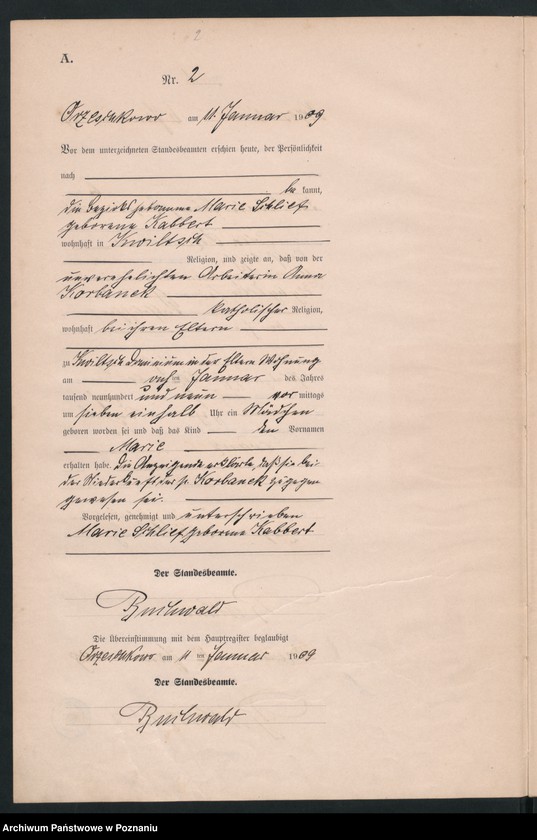 2
A.
Nr. 2
Orzeschkowo am 11. Januar 1909
Vor dem unterzeichneten Standesbeamten erschien heute, der Persönlichkeit
nach
be kannt,
die Bezirkshebamme Marie Schlief
geborene Kabbert
wohnhaft in Kwiltsch
Religion, und zeigte an, daß von der
unverehelichten Arbeiterin Anna
Korbanek
katholischer Religion,
wohnhaft bei ihren Eltern
zu Kwiltsch Dominium in der Eltern Wohnung
am ten Januar des Jahres
tausend neunhundert und neun vor mittags
um sieben einhalb Uhr ein Mädchen
geboren worden sei und daß das Kind den Vornamen
Marie
erhalten habe. Die Anzeigende erklärte, daß sie bei
der Niederkunft der p. Korbanek zugegen
gewesen sei.
Vorgelesen, genehmigt und unterschrieben
Marie Schlief geborene Kabbert
Der Standesbeamte.
Buchwald
Die Übereinstimmung mit dem Hauptregister beglaubigt
Orzeschkowo am 11 ten Januar 1909
Der Standesbeamte.
Buchwald
Archiwum Państwowe w Poznaniu